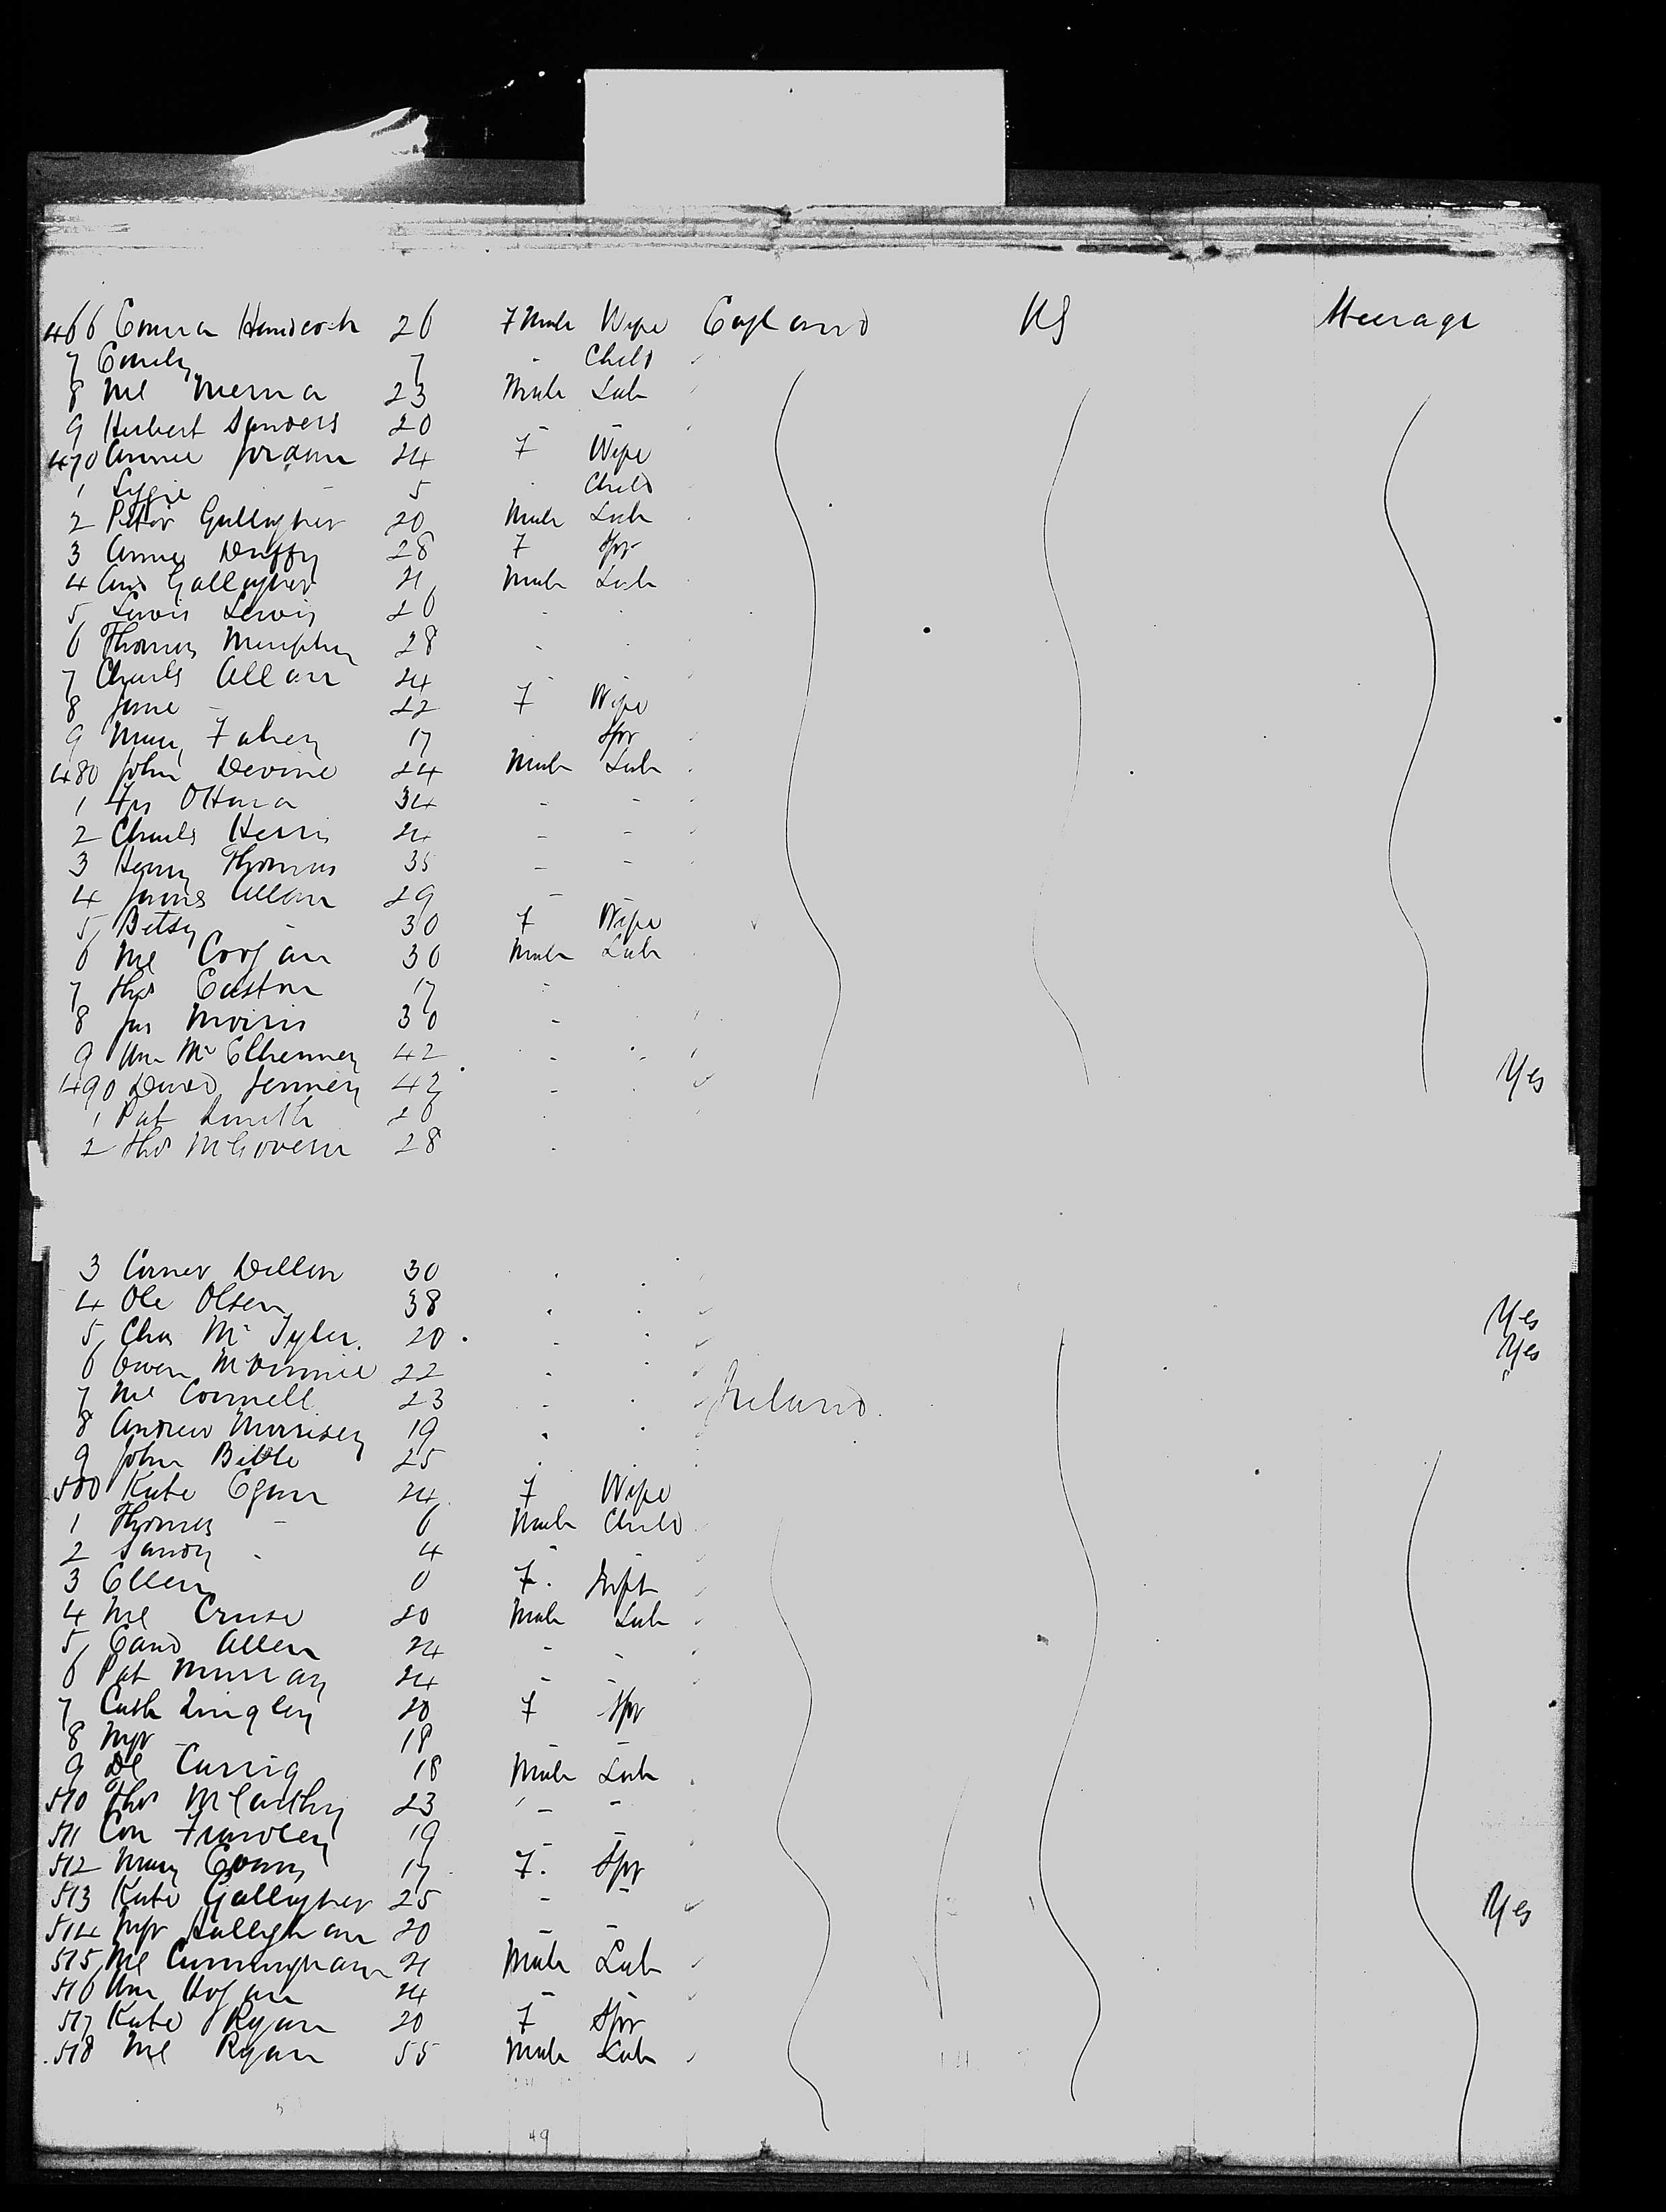 466 Emma Handcock 26 Fmale Wife England US Steerage
7 Emily 7 - Child
8 Ml 23 Male Lab
9 Herbert Sanders 20 - -
470 Annie Jordan 24 F Wife
1 Lizzie - 5 Child
2 Peter Gallagher 20 Male Lab
3 Annie Duffy 28 F Spr
4 And Gallagher 21 Male Lab
5 Lewis Lewis 26 -
6 Thomas Murphy 28 -
7 Charles Allan 24 -
8 Jane - 22 F Wife
9 Mary Fahey 17 Spr
480 John Devine 24 Male Lab
1 OHara 34 - -
2 Charles Herris 24 - -
3 Henry Thomas 35 - -
4 James Allan 29 -
5 Betsy - 30 F Wife
6 Ml Coogan 30 Male Lab
7 Thos Easton 17 -
8 Jas Morris 30 -
9 Wm McElhenney 42 -
490 David Jenney 42 - Yes
1 Pat Smith 26
2 Thos McGovern 28
3 Dillon 30
4 Ole Olsen 38 Yes
5 Chas Mc Tyler 20 Yes
6 Owen 22
7 Ml Connell 23 Ireland
8 Andrew Morrisey 19
9 John 25
500 Kate Egan 24 F Wife
1 Thomas - 6 Male Child
2 Sandy - 4 -
3 Ellen 0 F. Inft
4 Ml Cruse 20 Male Lab
5 Allen 24 - -
6 Pat Murray 24 - -
7 Cath Quigley 20 F Spr
8 Mgr - 18 - -
9 Dl Carrig 18 Male Lab
510 Thos McCarthy 23 - -
511 Con Frawley 19 - -
512 Mary Evans 17 F. Spr
513 Kate Gallagher 25 - - Yes
514 Mgr Hallighan 20 - -
515 Ml Cunningham 21 Male Lab
516 Wm Hogan 24 - -
517 Kate Ryan 20 F Spr
518 Ml Ryan 55 Male Lab
49